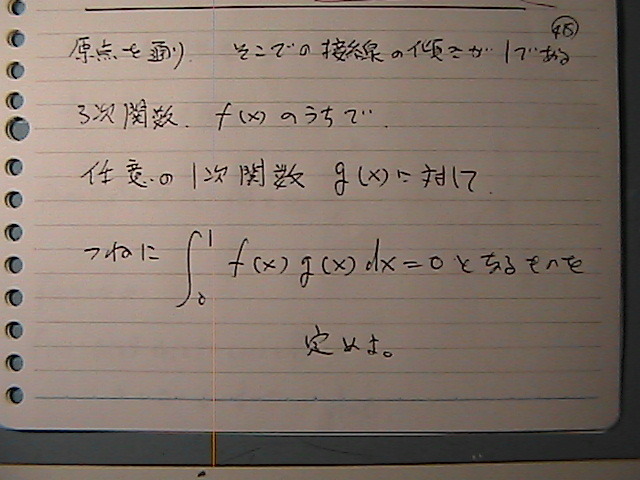 415
原点を通り、そこでの接線の傾きが1である
3次関数、f(x)のうちで、
任意の1次関数g(x)に対して、
つねに ∫₀¹ f(x)g(x)dx=0 となるものを
定めよ。